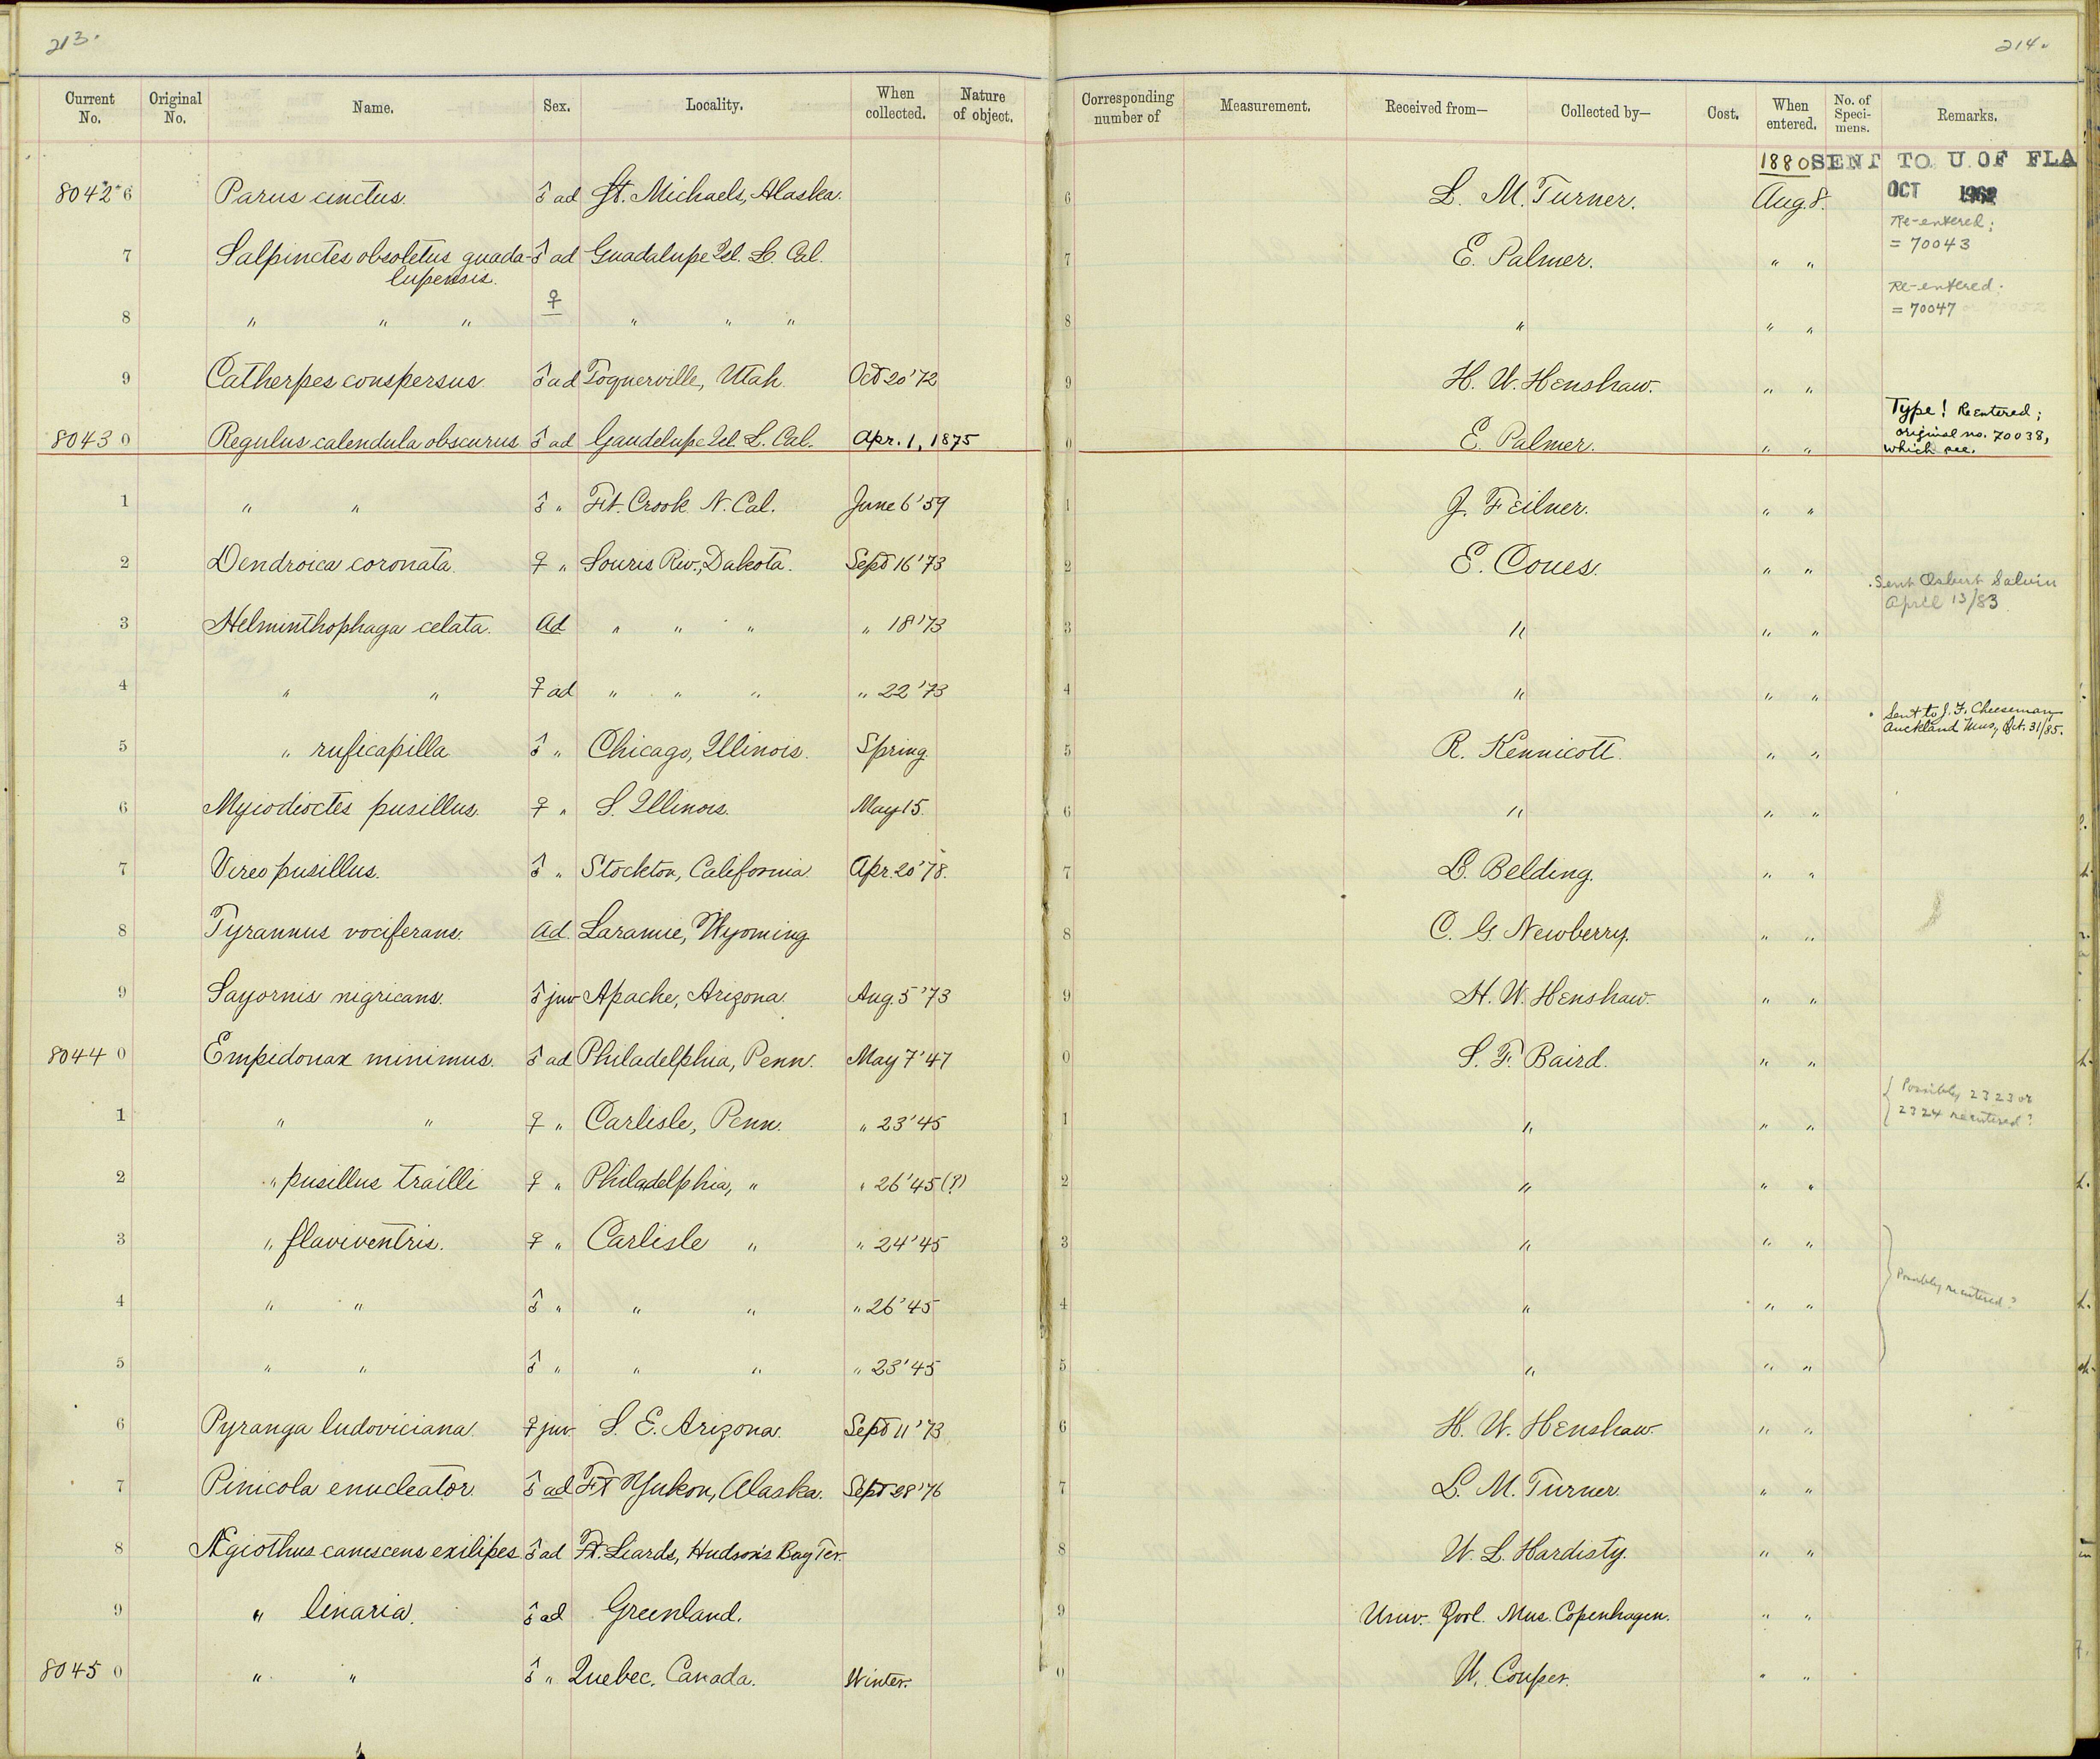 213.
214.
Current No. Original No. Name. Sex. Locality. When collected. Nature of object. Corresponding number of Measurement. Received from— Collected by— Cost. When entered. No. of Speci-mens. Remarks.
1880 SENT TO U OF FLA
80426 Parus cinctus. ♂ ad St. Michaels, Alaska. 6 L. M. Turner. Aug. 8. OCT 1962
7 Salpinctes obsoletus guada- ♂ ad Guadalupe Isl. L. Cal. 7 E. Palmer. " " Re-entered; = 70043
lupensis.
8 " " " ♀ " " " 8 " " " Re-entered. = 70047
9 Catherpes conspersus. ♂ ad Toquerville, Utah. Oct 20 '72 9 H. W. Henshaw. " "
80430 Regulus calendula obscurus ♂ ad Gaudelupe Isl. L. Cal. Apr. 1, 1875 0 E. Palmer. " " Type! Reentered; original no. 70038, which see.
1 " " ♂ " Ft. Crook N. Cal. June 6 '59 1 J. Feilner. " "
2 Dendroica coronata. ♀ " Souris Riv., Dakota. Sept 16 '73 2 E. Coues. " " Sent Osbert Salvin April 13/83
3 Helminthophaga celata. Ad " " " " 18 '73 3 " " "
4 " " ♀ ad " " " " 22 '73 4 " " "
5 " ruficapilla ♂ " Chicago, Illinois. Spring. 5 R. Kennicott. " " Sent to J. F. Cheeseman Auckland Mus, Oct. 31/85.
6 Myiodioctes pusillus. ♀ " S. Illinois. May 15. 6 " " "
7 Vireo pusillus. ♂ " Stockton, California. Apr. 20 '78. 7 L. Belding. " "
8 Tyrannus vociferans. ad. Laramie, Wyoming 8 C. G. Newberry. " "
9 Sayornis nigricans. ♂ juv Apache, Arizona. Aug. 5 '73 9 H. W. Henshaw. " "
80440 Empidonax minimus. ♂ ad Philadelphia, Penn. May 7 '47 0 S. F. Baird. " "
1 " " ♀ " Carlisle, Penn. " 23 '45 1 " " " Possibly 2323 or 2324 reentered?
2 " pusillus trailli ♀ " Philadelphia, " " 26 '45 (?) 2 " " "
3 " flaviventris. ♀ " Carlisle " " 24 '45 3 " " "
4 " " ♂ " " " " 26 '45 4 " " " Possibly reentered?
5 " " ♂ " " " " 23 '45 5 " " "
6 Pyranga ludoviciana. ♀ juv. S. E. Arizona. Sept 11 '73 6 H. W. Henshaw. " "
7 Pinicola enucleator. ♂ ad Ft Yukon, Alaska. Sept 28 '76 7 L. M. Turner. " "
8 Ægiothus canescens exilipes. ♂ ad Ft. Liards, Hudson's Bay Ter. 8 W. L. Hardisty. " "
9 " linaria. ♂ ad Greenland. 9 Univ. Zool. Mus. Copenhagen. " "
80450 " " ♂ " Quebec, Canada. Winter. 0 W. Couper. " "